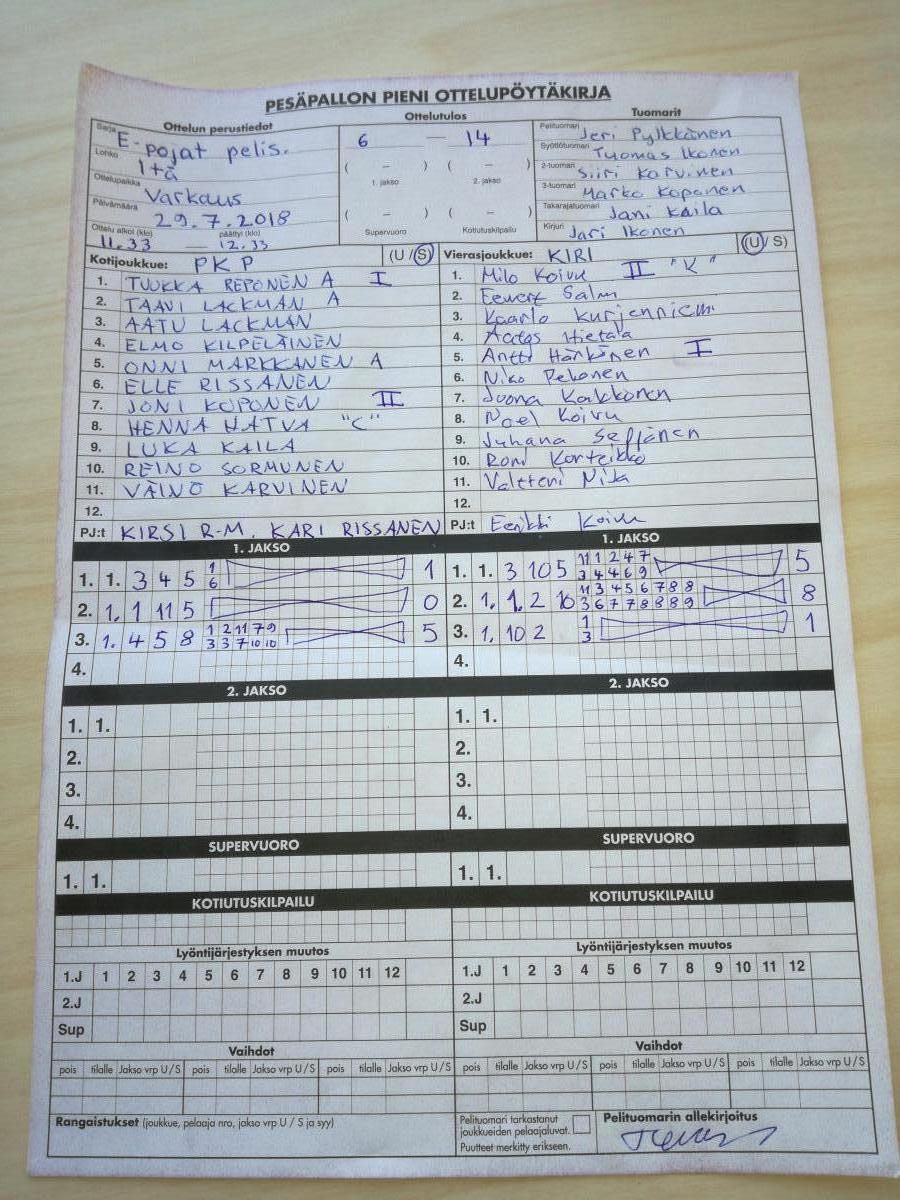 PESÄPALLON PIENI OTTELUPÖYTÄKIRJA
Ottelun perustiedot
Sarja E-pojat pelis.
Lohko Itä
Ottelupaikka Varkaus
Päivämäärä 29.7.2018
Ottelu alkoi (klo) päättyi (klo)
11.33 — 12.33
Ottelutulos
6 — 14
( – ) ( – )
1. jakso 2. jakso
( – ) ( – )
Supervuoro Kotiutuskilpailu
Tuomarit
Pelituomari Jeri Pylkkänen
Syöttötuomari Tuomas Ikonen
2-tuomari Siiri Karvinen
3-tuomari Marko Koponen
Takarajatuomari Jani Kaila
Kirjuri Jari Ikonen
Kotijoukkue: PKP (U / S)
1. TUUKKA REPONEN A I
2. TAAVI LACKMAN A
3. AATU LACKMAN
4. ELMO KILPELÄINEN
5. ONNI MARKKANEN A
6. ELLE RISSANEN
7. JONI KOPONEN II
8. HENNA HATVA "C"
9. LUKA KAILA
10. REINO SORMUNEN
11. VÄINÖ KARVINEN
12.
PJ:t KIRSI R-M, KARI RISSANEN
Vierasjoukkue: KIRI (U / S)
1. Milo Koivu II "K"
2. Eevert Salmi
3. Kaarlo Kurjenniemi
4. Aatos Hietala
5. Antti Härkönen I
6. Niko Pekonen
7. Juona Kakkonen
8. Noel Koivu
9. Juhana Seppänen
10. Roni Korteikko
11. Valtteri
12.
PJ:t Eerikki Koivu
1. JAKSO
1. 1. 3 4 5 1 1
6
2. 1. 1 11 5 0
3. 1. 4 5 8 1 2 11 7 9 5
3 3 7 10 10
4.
2. JAKSO
1. 1.
2.
3.
4.
SUPERVUORO
1. 1.
KOTIUTUSKILPAILU
Lyöntijärjestyksen muutos
1.J 1 2 3 4 5 6 7 8 9 10 11 12
2.J
Sup
Vaihdot
pois tilalle Jakso vrp U / S pois tilalle Jakso vrp U / S pois tilalle Jakso vrp U / S
1. JAKSO
1. 1. 3 10 5 11 1 2 4 7 5
3 4 4 6 9
2. 1. 1. 2 10 11 3 4 5 6 7 8 8 8
3 6 7 7 8 8 8 9
3. 1. 10 2 1 1
3
4.
2. JAKSO
1. 1.
2.
3.
4.
SUPERVUORO
1. 1.
KOTIUTUSKILPAILU
Lyöntijärjestyksen muutos
1.J 1 2 3 4 5 6 7 8 9 10 11 12
2.J
Sup
Vaihdot
pois tilalle Jakso vrp U / S pois tilalle Jakso vrp U / S pois tilalle Jakso vrp U / S
Rangaistukset (joukkue, pelaaja nro, jakso vrp U / S ja syy)
Pelituomari tarkastanut
joukkueiden pelaajaluvat.
Puutteet merkitty erikseen.
Pelituomarin allekirjoitus